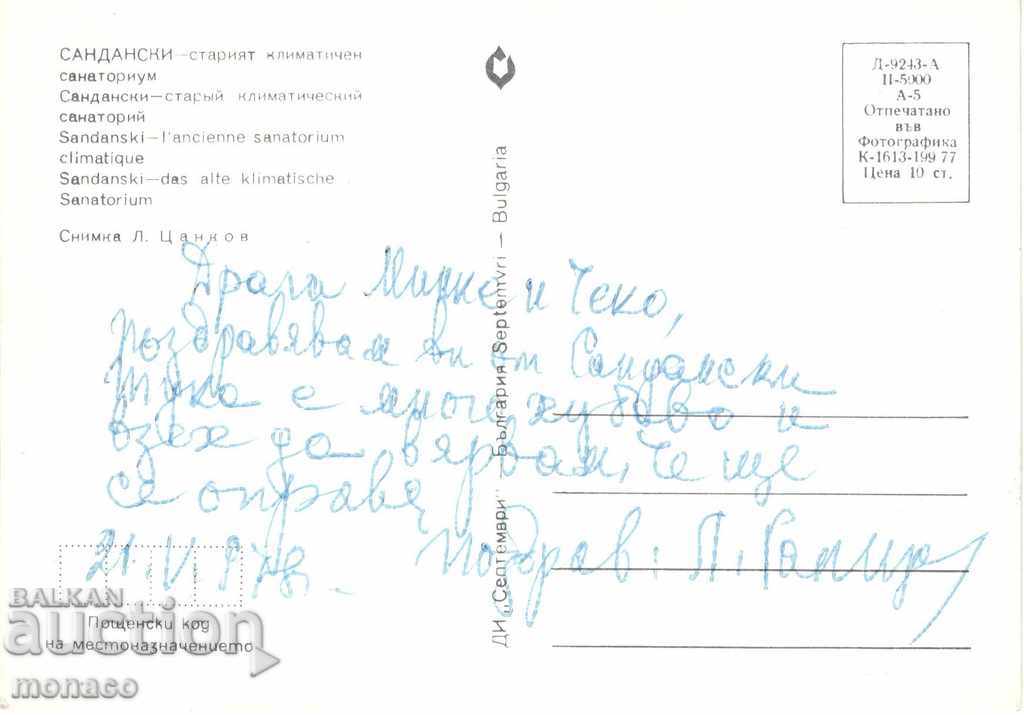 САНДАНСКИ—старият климатичен
санаториум
Сандански—старый климатический
санаторий
Sandanski—l'ancienne sanatorium
climatique
Sandanski—das alte klimatische
Sanatorium
Снимка Л. Цанков
Д-9243-А
П-5900
А-5
Отпечатано
във
Фотографика
К-1613-199 77
Цена 10 ст.
ДИ „Септември" — България Septemvri — Bulgaria
Драга Мирке и Чеко,
поздравявам ви от Сандански
Тука е много хубаво и
взех да вярвам, че ще
се оправя,
21.VI.978. Поздрав: П.
Пощенски код
на местоназначението
BALKAN
auction
monaco